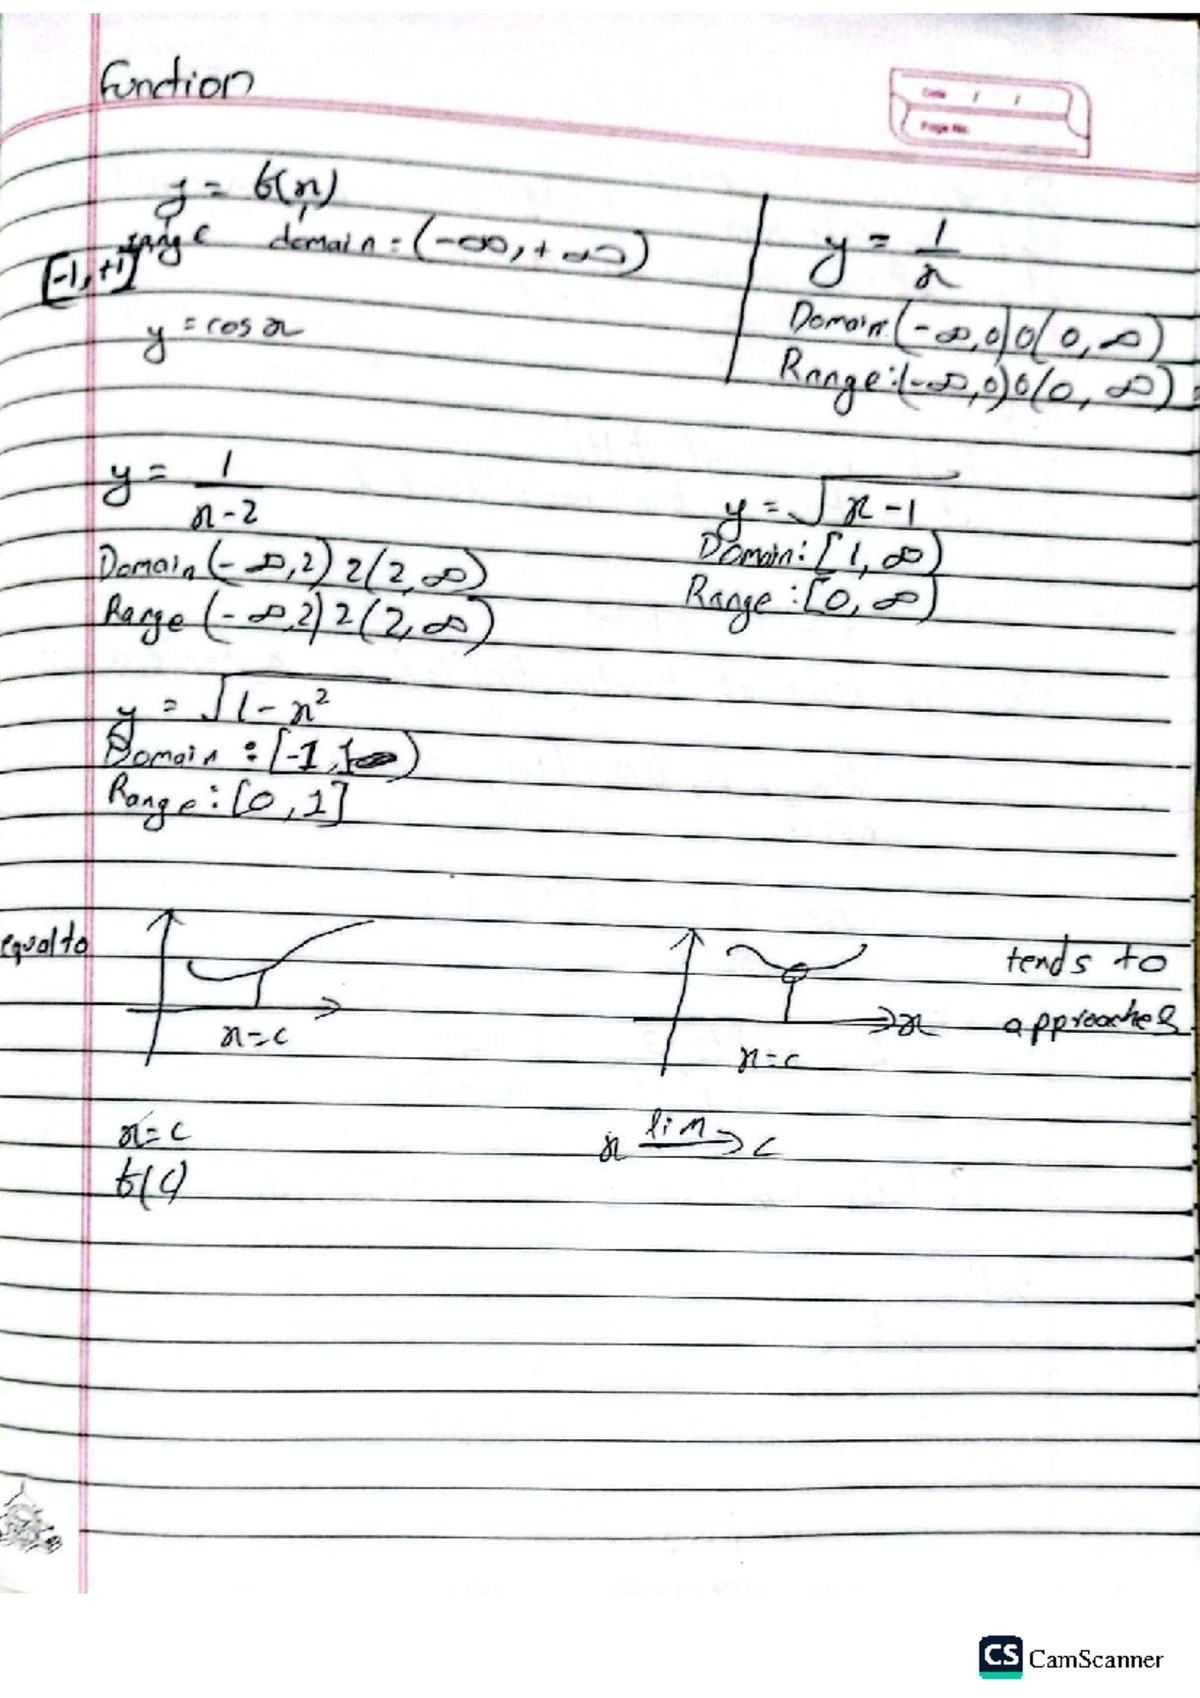 Function
Date / /
Page No.
y = f(x)
range domain = (-∞, +∞)
[-1, +1]
y = cos x
y = 1/x
Domain (-∞,0)0(0, ∞)
Range: (-∞,0)0(0, ∞)
y = 1/(x-2)
Domain (-∞,2) 2(2,∞)
Range (-∞,2) 2(2,∞)
y = √(x-1)
Domain: [1, ∞)
Range: [0, ∞)
y = √(1-x²)
Domain: [-1, 1)
Range: [0, 1]
equal to
x=c
x=c
f(c)
x
x=c
tends to
approaches
x lim→ c
CS CamScanner